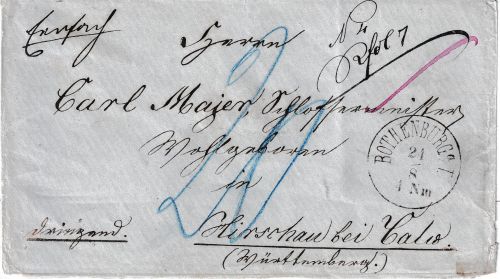 Einfach
Herrn
No
Rfol 7
Carl Majer, Schlossermeister
Wohlgeboren
in
Hirschau bei Calw.
(Württemberg.)
dringend.
20
ROTHENBURG o T
21
8
4 Nm